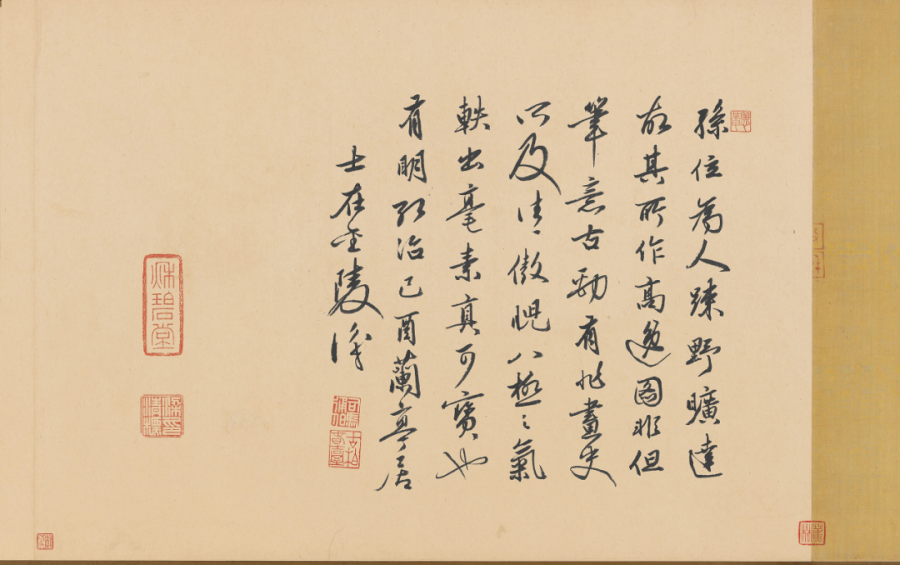 孫位為人踈野曠達
故其所作高逸圖非但
筆意古勁有非畫史
所及傲睨八極之氣
軼出毫素真可寶也
有明弘治己酉蘭亭居
士在金陵識
秌碧堂
梁印清標